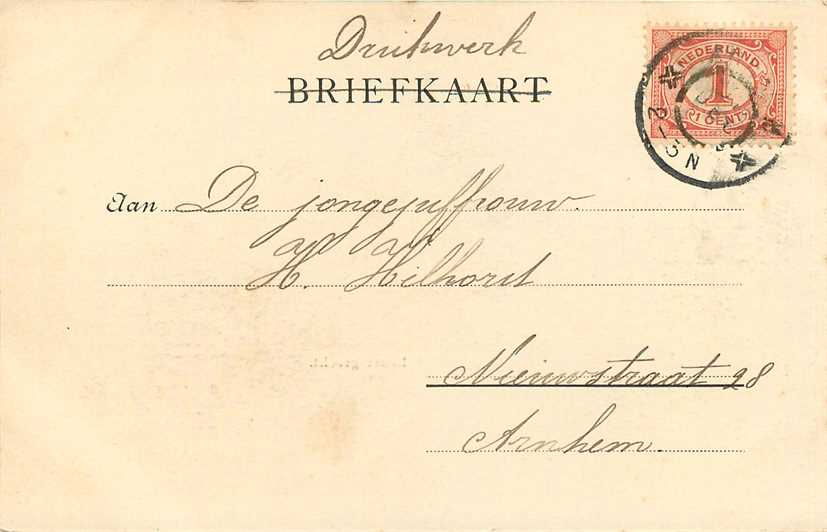 Drukwerk
BRIEFKAART
NEDERLAND
1
1 CENT
2-3N
Aan De jongejuffrouw.
H. Hilhorst
Nieuwstraat 28
Arnhem.